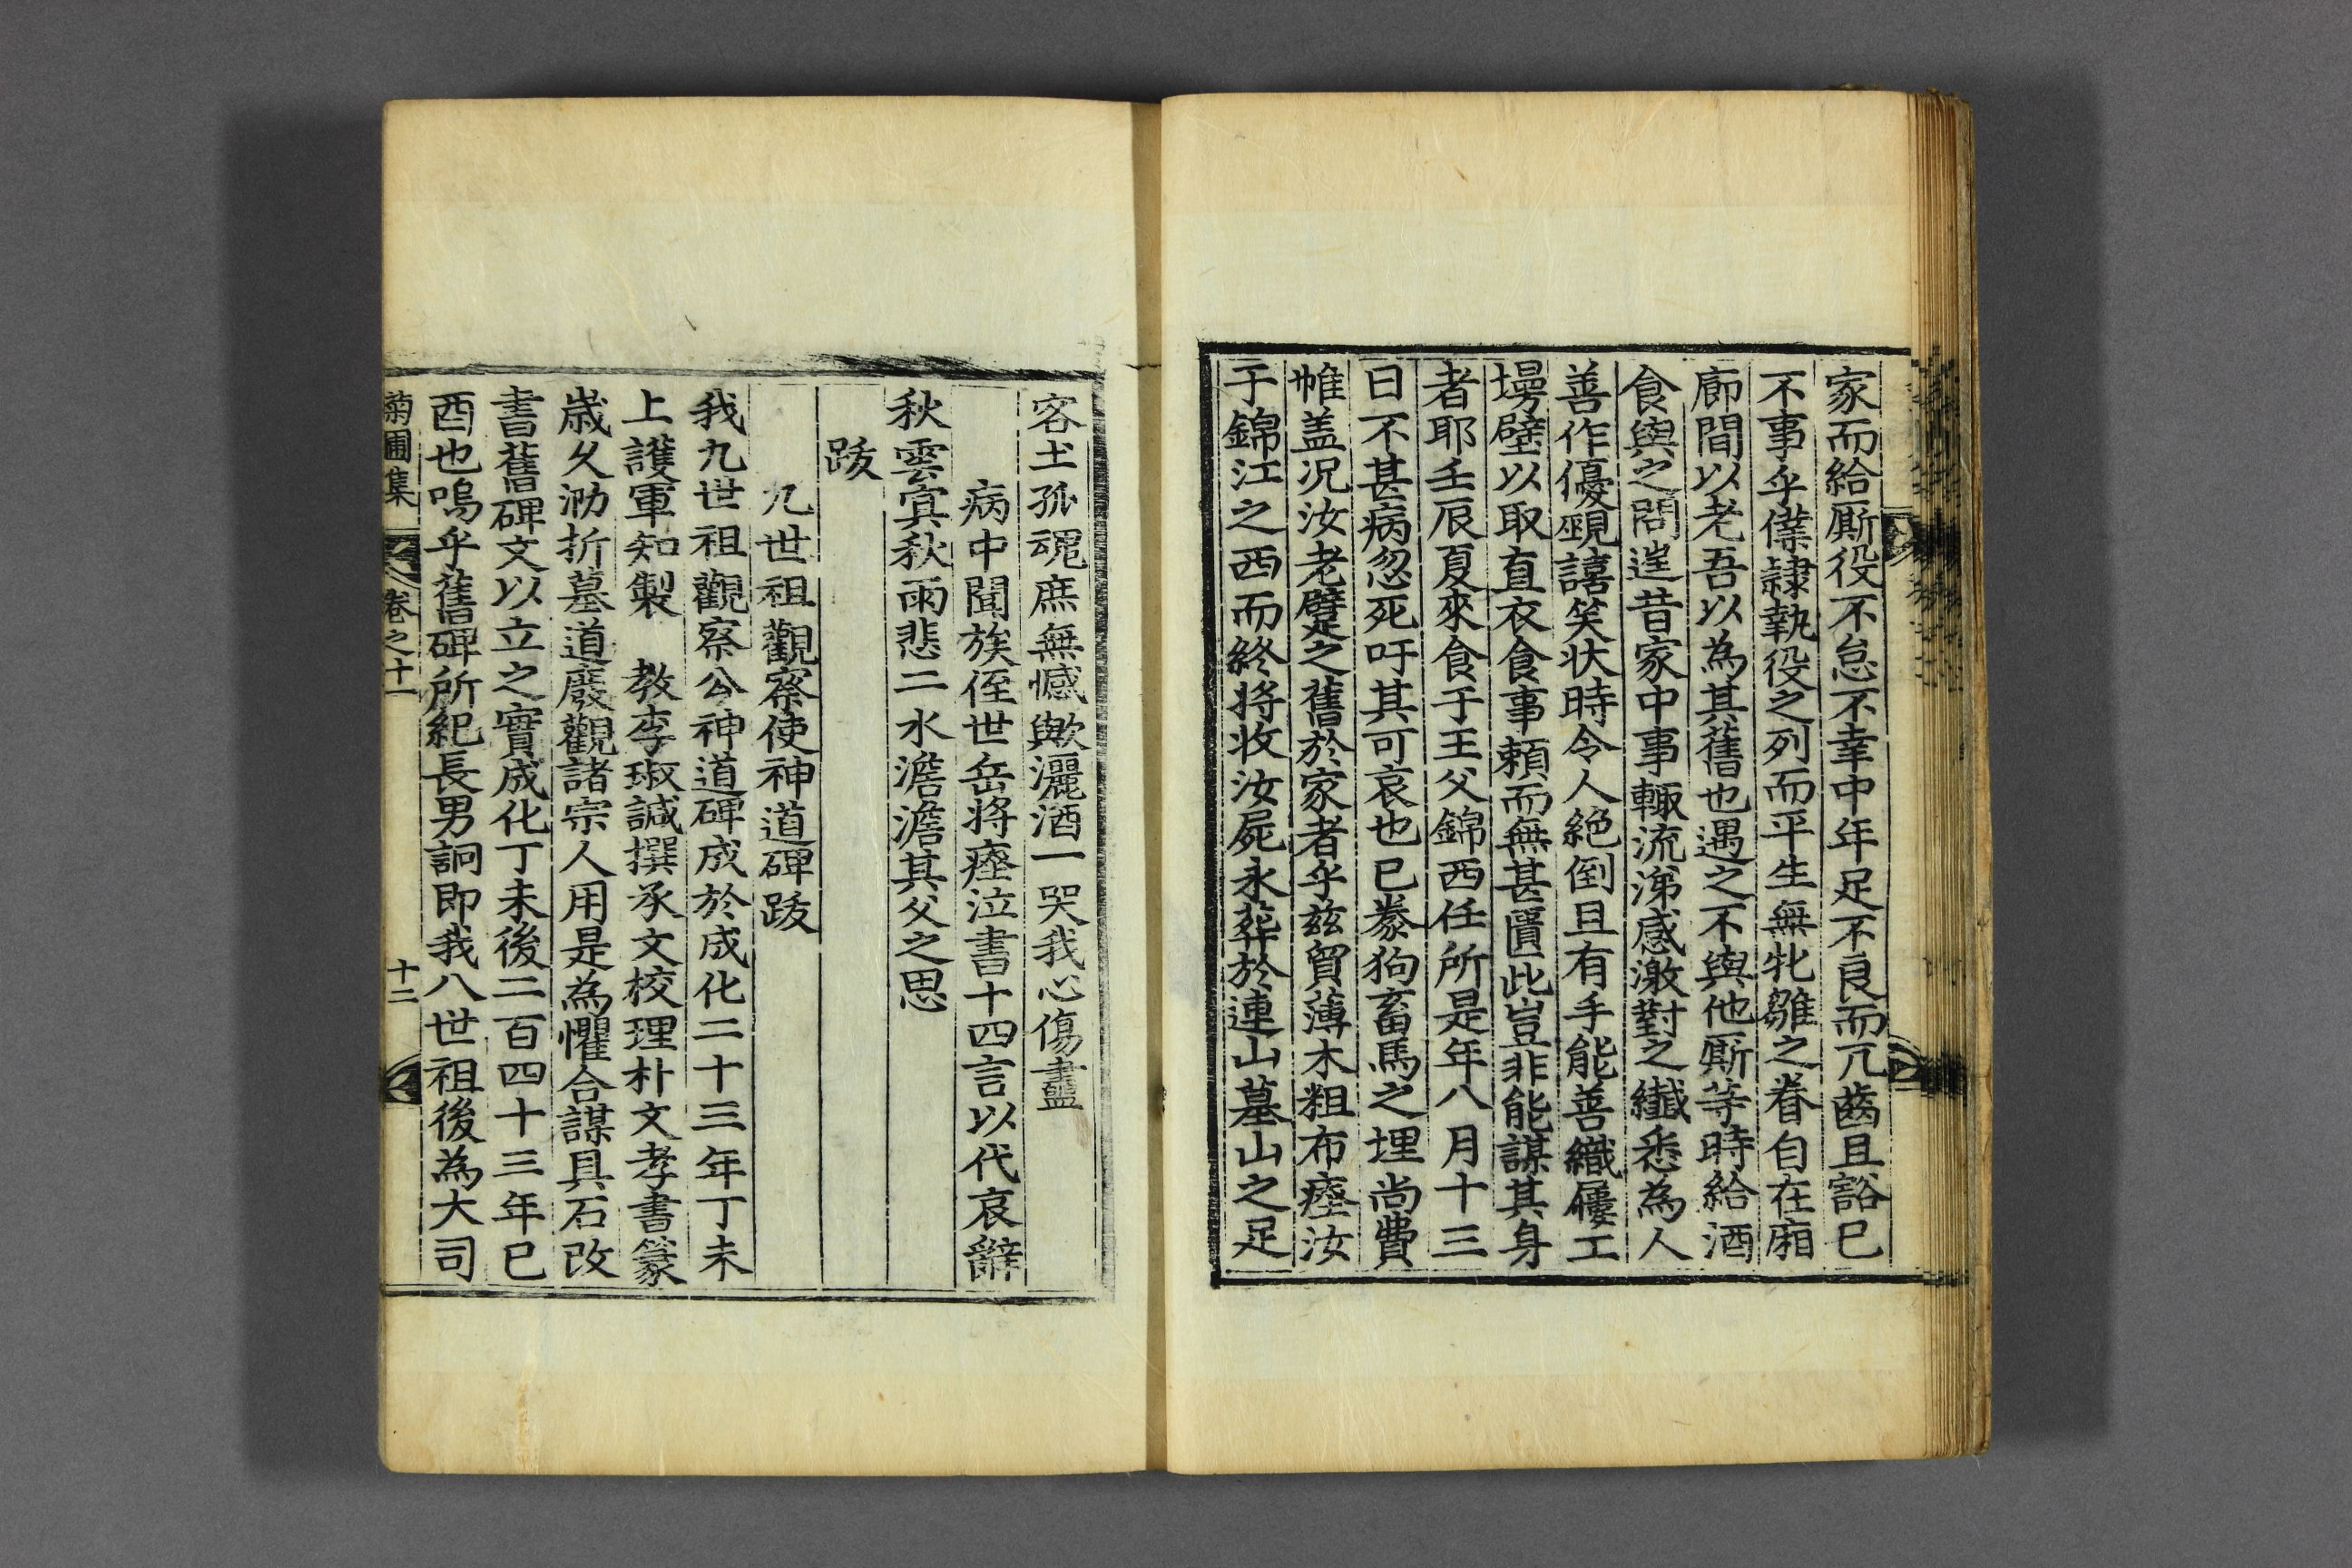 家而給厮役不怠不幸中年足不良而兀齒且豁已
不事乎僕隷執役之列而平生無牝雛之眷自在廂
廊間以老吾以為其舊也遇之不與他厮等時給酒
食與之問道昔家中事輙流涕感激對之纎悉為人
善作優覡譆笑状時令人絶倒且有手能善織屨工
墁壁以取直衣食事頼而無甚匱此豈非能謀其身
者耶壬辰夏來食于王父錦西任所是年八月十三
日不甚病忽死吁其可哀也已豢狗畜馬之埋尚費
帷盖况汝老躄之舊於家者乎兹貿薄木粗布瘞汝
于錦江之西而終将收汝屍永葬於連山墓山之足
客土孤魂庶無憾歟灑酒一哭我心傷衋
病中聞族侄世岳将瘞泣書十四言以代哀辭
秋雲寘秋雨悲二水澹澹其父之思
跋
九世祖觀察使神道碑跋
我九世祖觀察公神道碑成於成化二十三年丁未
上護軍知製 教李琡諴撰承文校理朴文孝書篆
歳久泐折墓道廢觀諸宗人用是為懼合謀具石改
書舊碑文以立之實成化丁未後二百四十三年已
酉也嗚乎舊碑所紀長男詗即我八世祖後為大司
菊圃集 卷之十一 十二